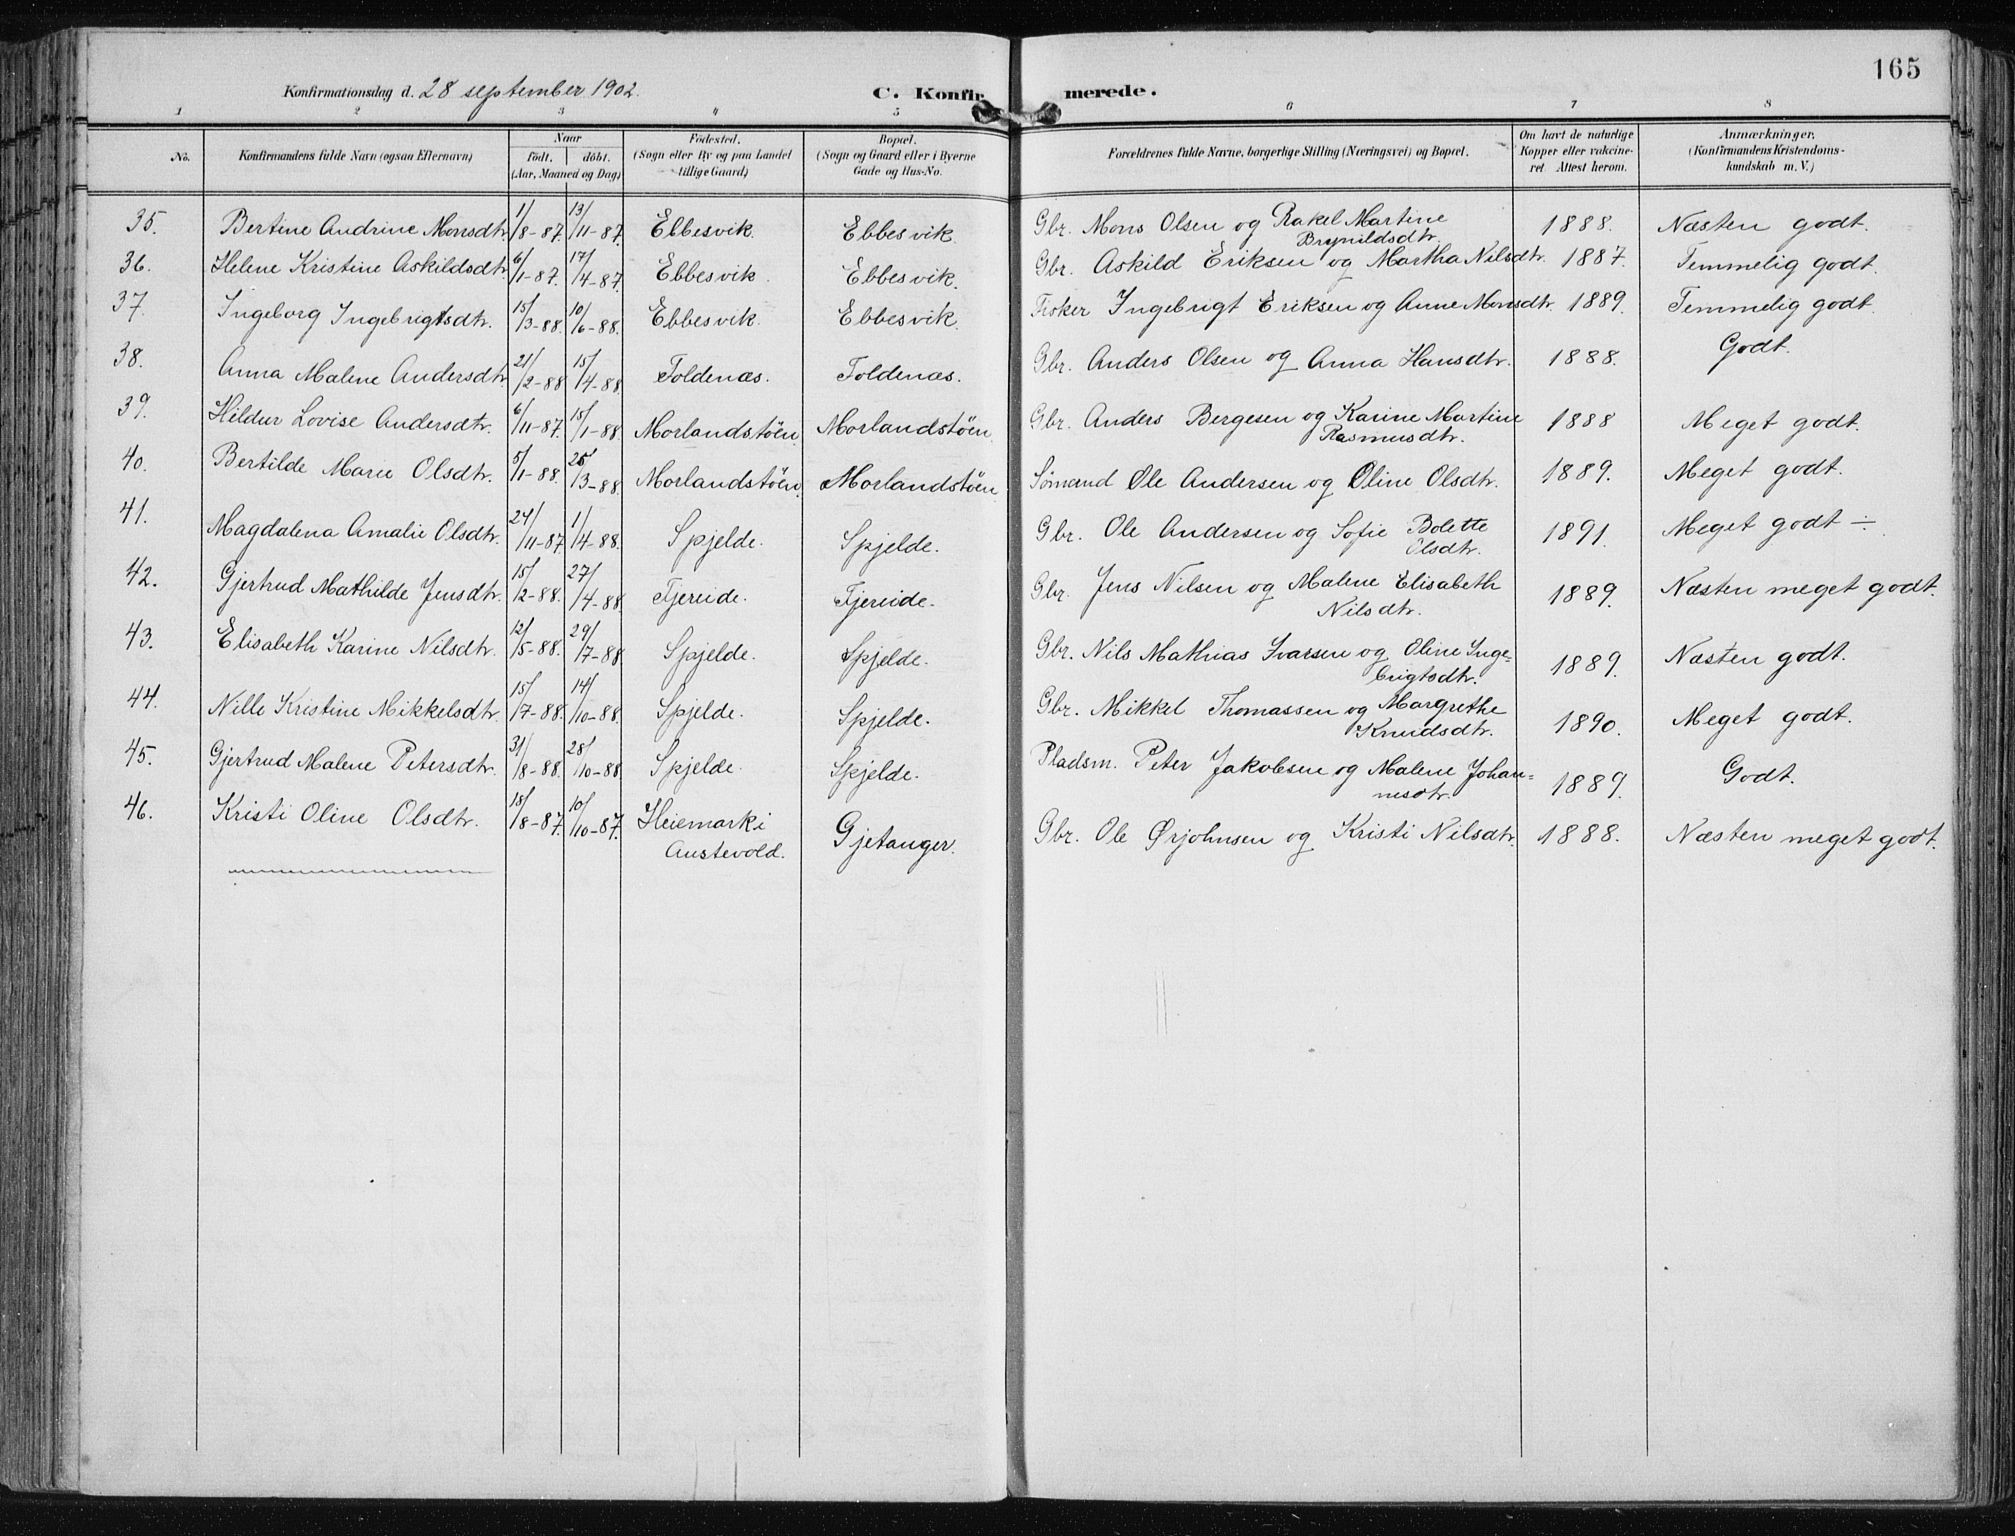 165
Konfirmationsdag d. 28 september 1902.
C. Konfirmerede.
1 2 3 4 5 6 7 8
No. Konfirmandens fulde Navn (ogsaa Efternavn) Naar född, döbt. (Aar, Maaned og Dag) Födested. (Sogn eller By og paa Landet tillige Gaard) Bopæl. (Sogn og Gaard eller i Byerne Gade og Hus-No. Forældrenes fulde Navne, borgerlige Stilling (Næringsvei) og Bopæl. Om havt de naturlige Kopper eller vakcineret Attest herom. Anmærkninger. (Konfirmandens Kristendomskundskab m. V.)
35. Bertine Andrine Monsdtr. 1/8-87. 13/11-87. Ebbesvik. Ebbesvik. Gbr. Mons Olsen og Rakel Martine Brynildsdtr. 1888. Næsten godt.
36. Helene Kristine Askildsdtr. 6/1-87. 17/4-87. Ebbesvik. Ebbesvik. Gbr. Askild Eriksen og Martha Nilsdtr. 1887. Temmelig godt.
37. Ingeborg Ingebrigtsdtr. 15/3-88. 10/6-88. Ebbesvik. Ebbesvik. Fisker Ingebrigt Eriksen og Anne Monsdtr. 1889. Temmelig godt.
38. Anna Malene Andersdtr. 21/2-88 15/4-88. Toldenæs. Toldenæs. Gbr. Anders Olsen og Anna Hansdtr. 1888. Godt.
39. Hildur Lovise Andersdtr. 6/11-87. 15/1-88. Morlandstöen. Morlandstöen. Gbr. Anders Bergesen og Karine Martine Rasmusdtr. 1888 Meget godt.
40. Bertilde Marie Olsdtr. 5/1-88. 25/3-88. Morlandstöen. Morlandstöen. Sømand Ole Andersen og Oline Olsdtr. 1889. Meget godt.
41. Magdalena Amalie Olsdtr. 24/11-87 1/4-88. Spjelde. Spjelde. Gbr. Ole Andersen og Sofie Bolette Olsdtr. 1891. Meget godt ÷
42. Gjertrud Mathilde Jensdtr. 15/2-88. 27/4-88. Fjereide. Fjereide. Gbr. Jens Nilsen og Malene Elisabeth Nilsdtr. 1889. Næsten meget godt.
43. Elisabeth Karine Nilsdtr. 12/5-88. 29/7-88. Spjelde. Spjelde. Gbr. Nils Mathias Ivarsen og Oline Ingebrigtsdtr. 1889. Næsten godt.
44. Nille Kristine Mikkelsdtr. 15/7-88. 14/10-88. Spjelde. Spjelde. Gbr. Mikkel Thomassen og Margrethe Knudsdtr. 1890. Meget godt.
45. Gjertrud Malene Petersdtr. 31/8-88. 28/10-88. Spjelde. Spjelde. Pladsm. Peter Jakobsen og Malene Johannesdtr. 1889. Godt.
46. Kristi Oline Olsdtr. 18/8-87. 10/10-87. Heiemark i Austevold. Gjetanger. Gbr. Ole Ørjohnsen og Kristi Nilsdtr. 1888. Næsten meget godt.